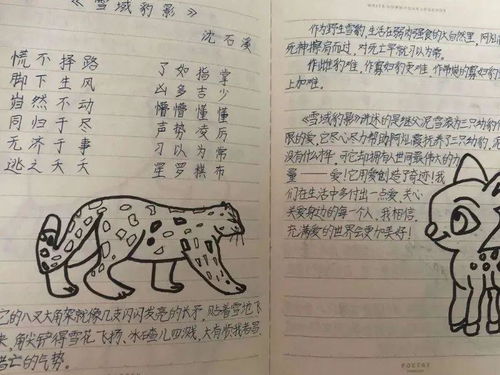 《雪域豹影》
沈石溪
慌不择路
脚下生风
岿然不动
同归于尽
无济于事
逃之夭夭
了如指堂
凶多吉少
懵懵懂懂
声势凌厉
习以为常
星罗棋布
它的八叉大角架就像几支闪闪发亮的长矛,贴着雪地飞
来,角尖铲得雪花飞扬,冰碴儿四溅,大有
的气势。
作为野生雪豹,生活在弱肉强食的大自然里,
死神擦肩而过,对死亡早就习以为常。
作雌豹难,作寡妇豹更难,作带崽的寡妇豹
上加难。
《雪域豹影》讲述的是继父泥雪滚为三只幼豹
限的爱,它尽心尽力帮助阿灿霞抚养了三只幼豹,
没有什么 可它却拥有人世间最伟大的力
量——爱!它用爱创造了奇迹!我
们在生活中多付出一点爱、关心
关爱身边的每一个人,我相信,
充满爱的世界会更加美好!
POETRY